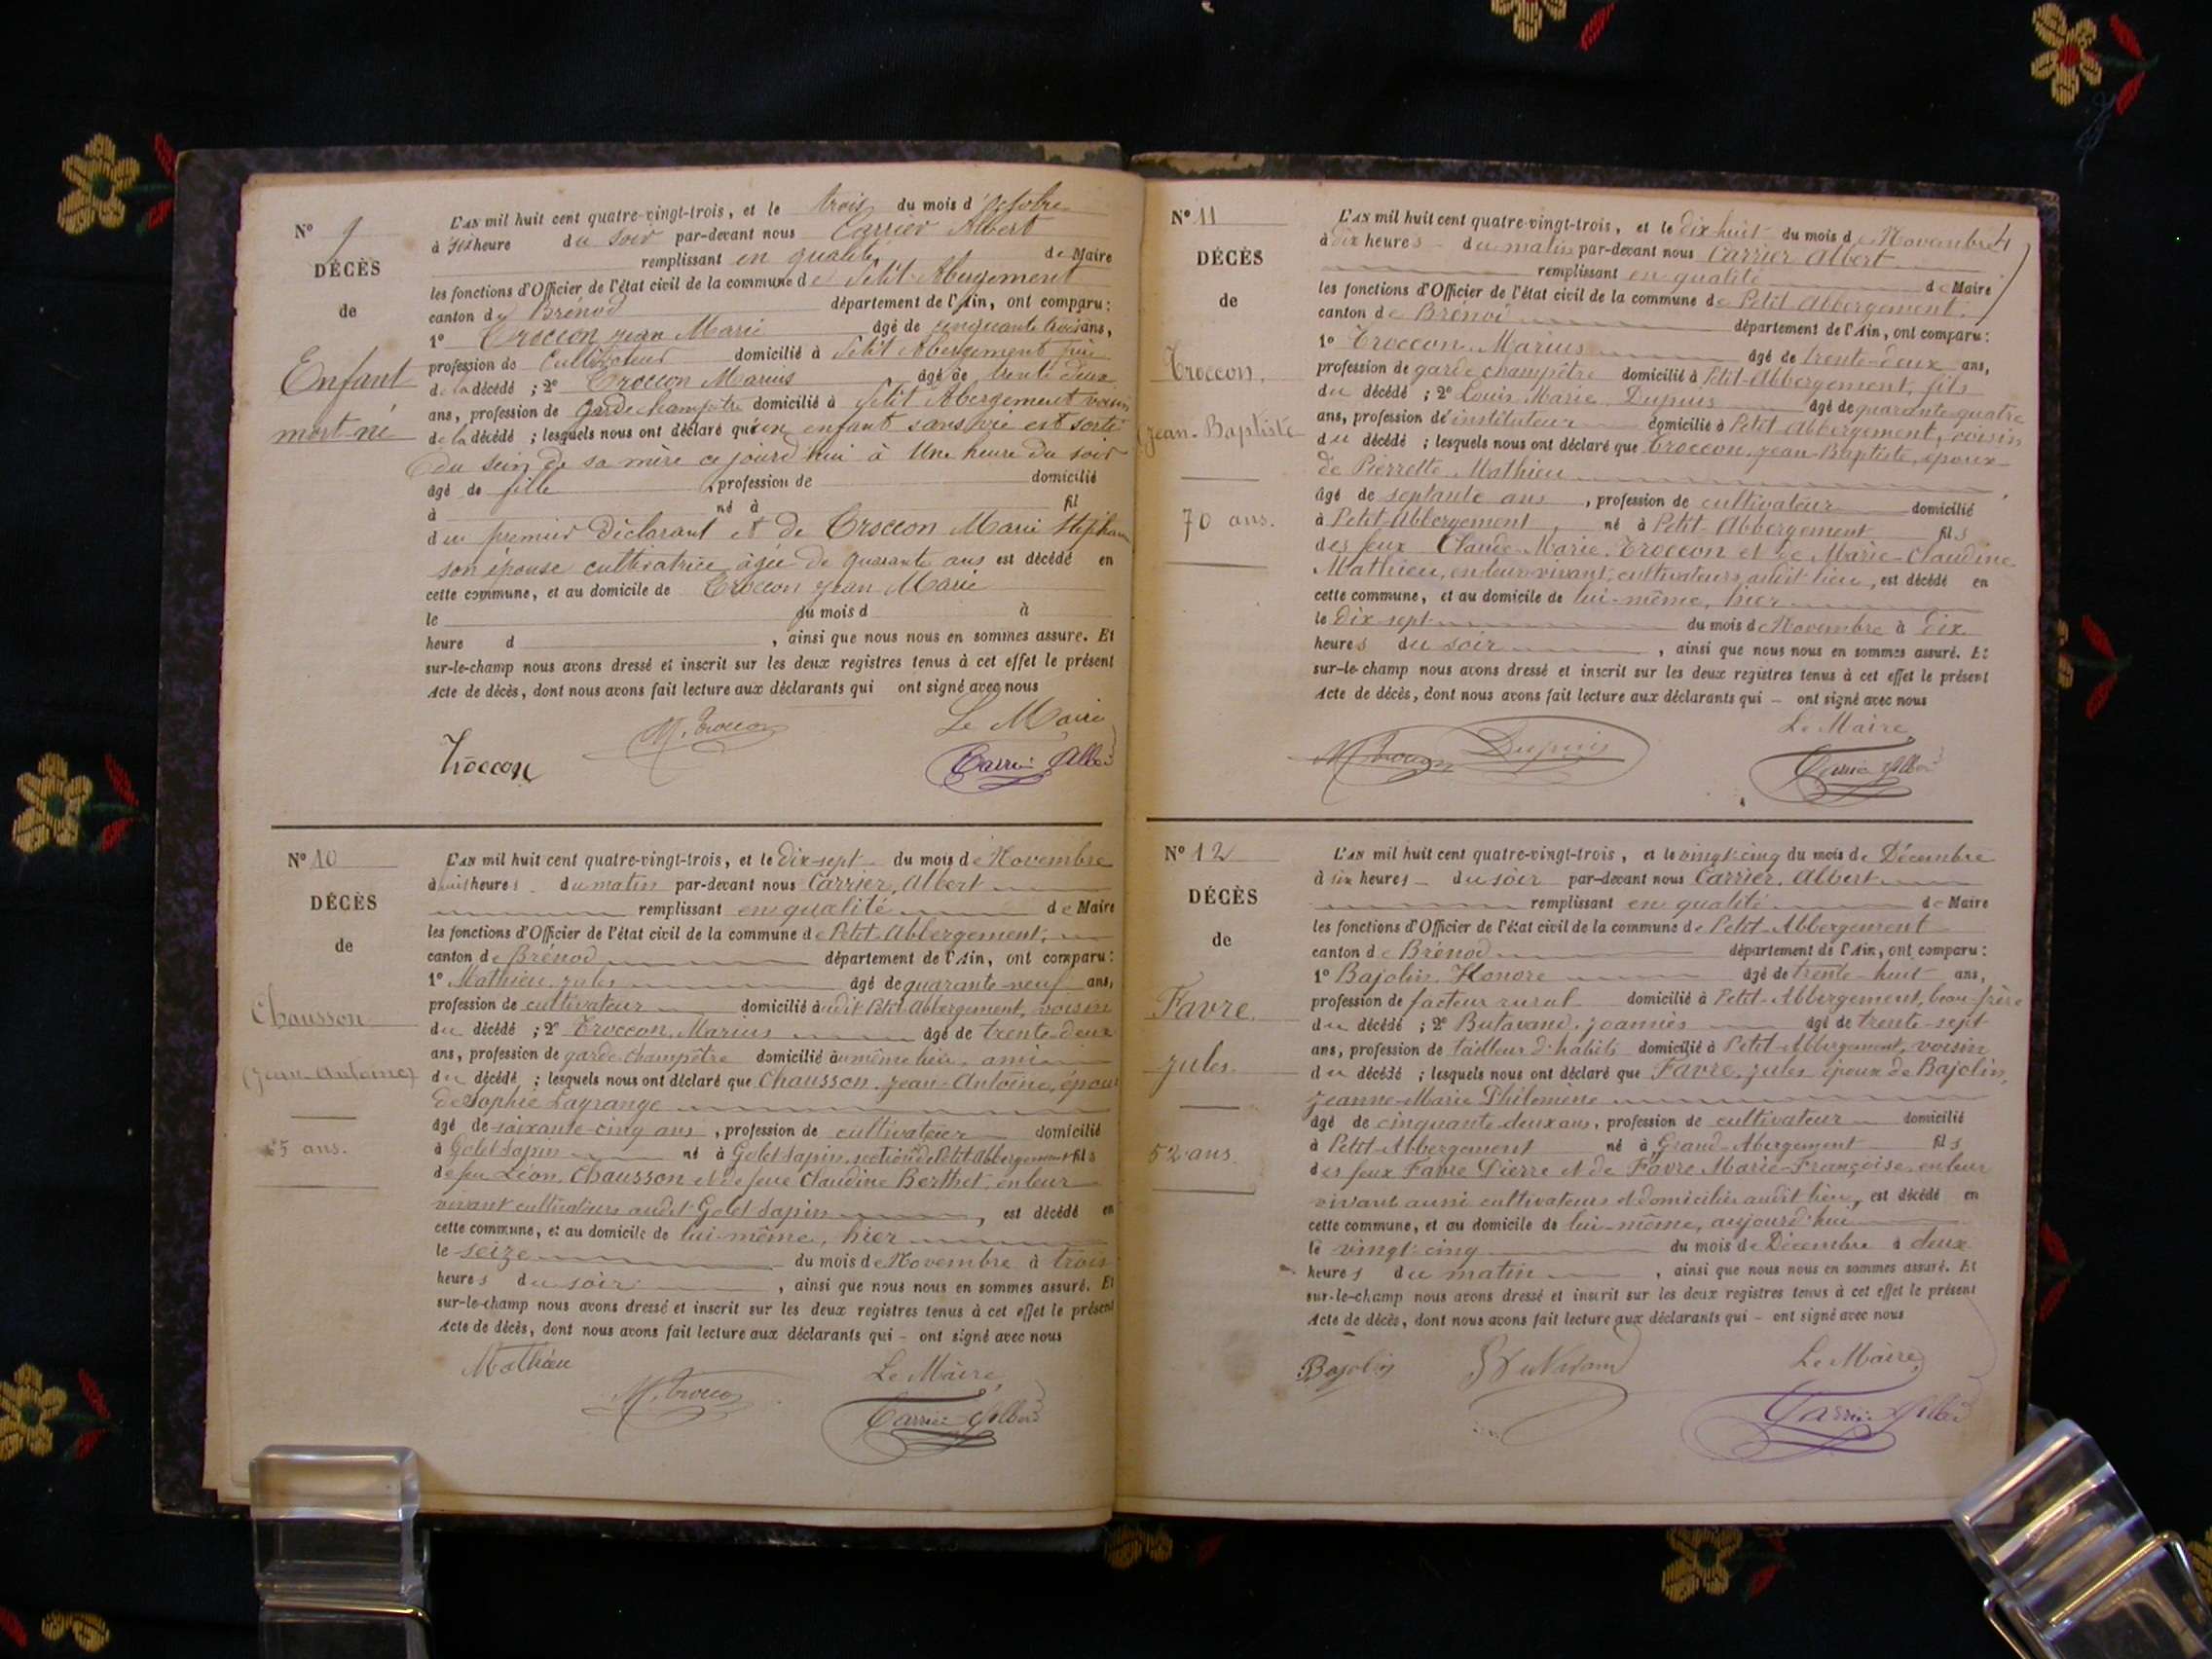 N° 9
DÉCÈS
de
Enfant
mort-né
L'AN mil huit cent quatre-vingt-trois, et le trois du mois d'Octobre
à six heure du soir par-devant nous Carrier Albert
remplissant en qualité de Maire
les fonctions d'Officier de l'état civil de la commune de Petit Abergement
canton de Brénod département de l'Ain, ont comparu:
1° Troccon Jean Marie âgé de cinquante trois ans,
profession de Cultivateur domicilié à Petit Abergement père
de la décédé ; 2° Troccon Marius âgé de trente deux
ans, profession de garde champêtre domicilié à Petit Abergement voisin
de la décédé ; lesquels nous ont déclaré qu'un enfant sans vie est sorti
du sein de sa mère ce jourd'hui à Une heure du soir
âgé de fille , profession de domicilié
à né à fil
du premier Déclarant et de Troccon Marie
son épouse cultivatrice âgée de quarante ans est décédé en
cette commune, et au domicile de Troccon Jean Marie
le du mois d à
heure d , ainsi que nous nous en sommes assuré. Et
sur-le-champ nous avons dressé et inscrit sur les deux registres tenus à cet effet le présent
Acte de décès, dont nous avons fait lecture aux déclarants qui ont signé avec nous
Le Maire
Troccon M. Troccon Carrier Albert
N° 10
DÉCÈS
de
Chausson
(Jean-Antoine)
65 ans.
L'AN mil huit cent quatre-vingt-trois, et le dix-sept du mois de Novembre
à huit heures du matin par-devant nous Carrier, Albert
remplissant en qualité de Maire
les fonctions d'Officier de l'état civil de la commune de Petit-Abbergement,
canton de Brénod département de l'Ain, ont comparu:
1° Mathieu Jules âgé de quarante-neuf ans,
profession de cultivateur domicilié à udit Petit Abbergement, voisin
du décédé ; 2° Troccon, Marius âgé de trente-deux
ans, profession de garde champêtre domicilié au même lieu, ami
du décédé ; lesquels nous ont déclaré que Chausson, Jean-Antoine, époux
de Sophie Lagrange
âgé de soixante-cinq ans , profession de cultivateur domicilié
à Golet Sapin né à Golet Sapin, section de Petit Abbergement fils
de feu Léon, Chausson et de feue Claudine Berthet, en leur
vivant cultivateurs audit Golet Sapin , est décédé en
cette commune, et au domicile de lui-même, hier
le seize du mois de Novembre à trois
heures du soir , ainsi que nous nous en sommes assuré. Et
sur-le-champ nous avons dressé et inscrit sur les deux registres tenus à cet effet le présent
Acte de décès, dont nous avons fait lecture aux déclarants qui – ont signé avec nous
Mathieu Le Maire,
M. Troccon Carrier Albert
N° 11
DÉCÈS
de
Troccon,
Jean-Baptiste
70 ans.
L'AN mil huit cent quatre-vingt-trois, et le dix-huit du mois de Novembre
à dix heures du matin par-devant nous Carrier Albert
remplissant en qualité de Maire
les fonctions d'Officier de l'état civil de la commune de Petit Abbergement,
canton de Brénod département de l'Ain, ont comparu:
1° Troccon, Marius âgé de trente-deux ans,
profession de garde champêtre domicilié à Petit-Abbergement, fils
du décédé ; 2° Louis Marie Dupuis âgé de quarante quatre
ans, profession d'instituteur domicilié à Petit Abbergement, voisin
du décédé ; lesquels nous ont déclaré que Troccon, Jean-Baptiste, époux
de Pierrette Mathieu
âgé de septante ans , profession de cultivateur domicilié
à Petit-Abbergement né à Petit-Abbergement fils
des feux Claude-Marie, Troccon et de Marie-Claudine
Mathieu, en leur vivant, cultivateurs audit lieu, est décédé en
cette commune, et au domicile de lui-même, hier
le dix sept du mois de Novembre à dix
heures du soir , ainsi que nous nous en sommes assuré. Et
sur-le-champ nous avons dressé et inscrit sur les deux registres tenus à cet effet le présent
Acte de décès, dont nous avons fait lecture aux déclarants qui – ont signé avec nous
Le Maire,
M Troccon Dupuis Carrier Albert
N° 12
DÉCÈS
de
Favre
Jules.
52 ans.
L'AN mil huit cent quatre-vingt-trois, et le vingt-cinq du mois de Décembre
à six heures du soir par-devant nous Carrier, Albert
remplissant en qualité de Maire
les fonctions d'Officier de l'état civil de la commune de Petit-Abbergement
canton de Brénod département de l'Ain, ont comparu:
1° Bajolin, Honore âgé de trente-huit ans,
profession de facteur rural domicilié à Petit-Abbergement, beau-frère
du décédé ; 2° Butavand, Joannès âgé de trente-sept
ans, profession de tailleur d'habits domicilié à Petit-Abbergement, voisin
du décédé ; lesquels nous ont déclaré que Favre, Jules époux de Bajolin,
Jeanne-Marie Philomène
âgé de cinquante deux ans, profession de cultivateur domicilié
à Petit-Abbergement né à Grand-Abergement fils
des feux Favre Pierre et de Favre Marie-Françoise, en leur
vivant aussi cultivateurs et domiciliés audit lieu, est décédé en
cette commune, et au domicile de lui-même, aujourd'hui
le vingt-cinq du mois de Décembre à deux
heures du matin , ainsi que nous nous en sommes assuré. Et
sur-le-champ nous avons dressé et inscrit sur les deux registres tenus à cet effet le présent
Acte de décès, dont nous avons fait lecture aux déclarants qui – ont signé avec nous
Bajolin Butavand Le Maire,
Carrier Albert